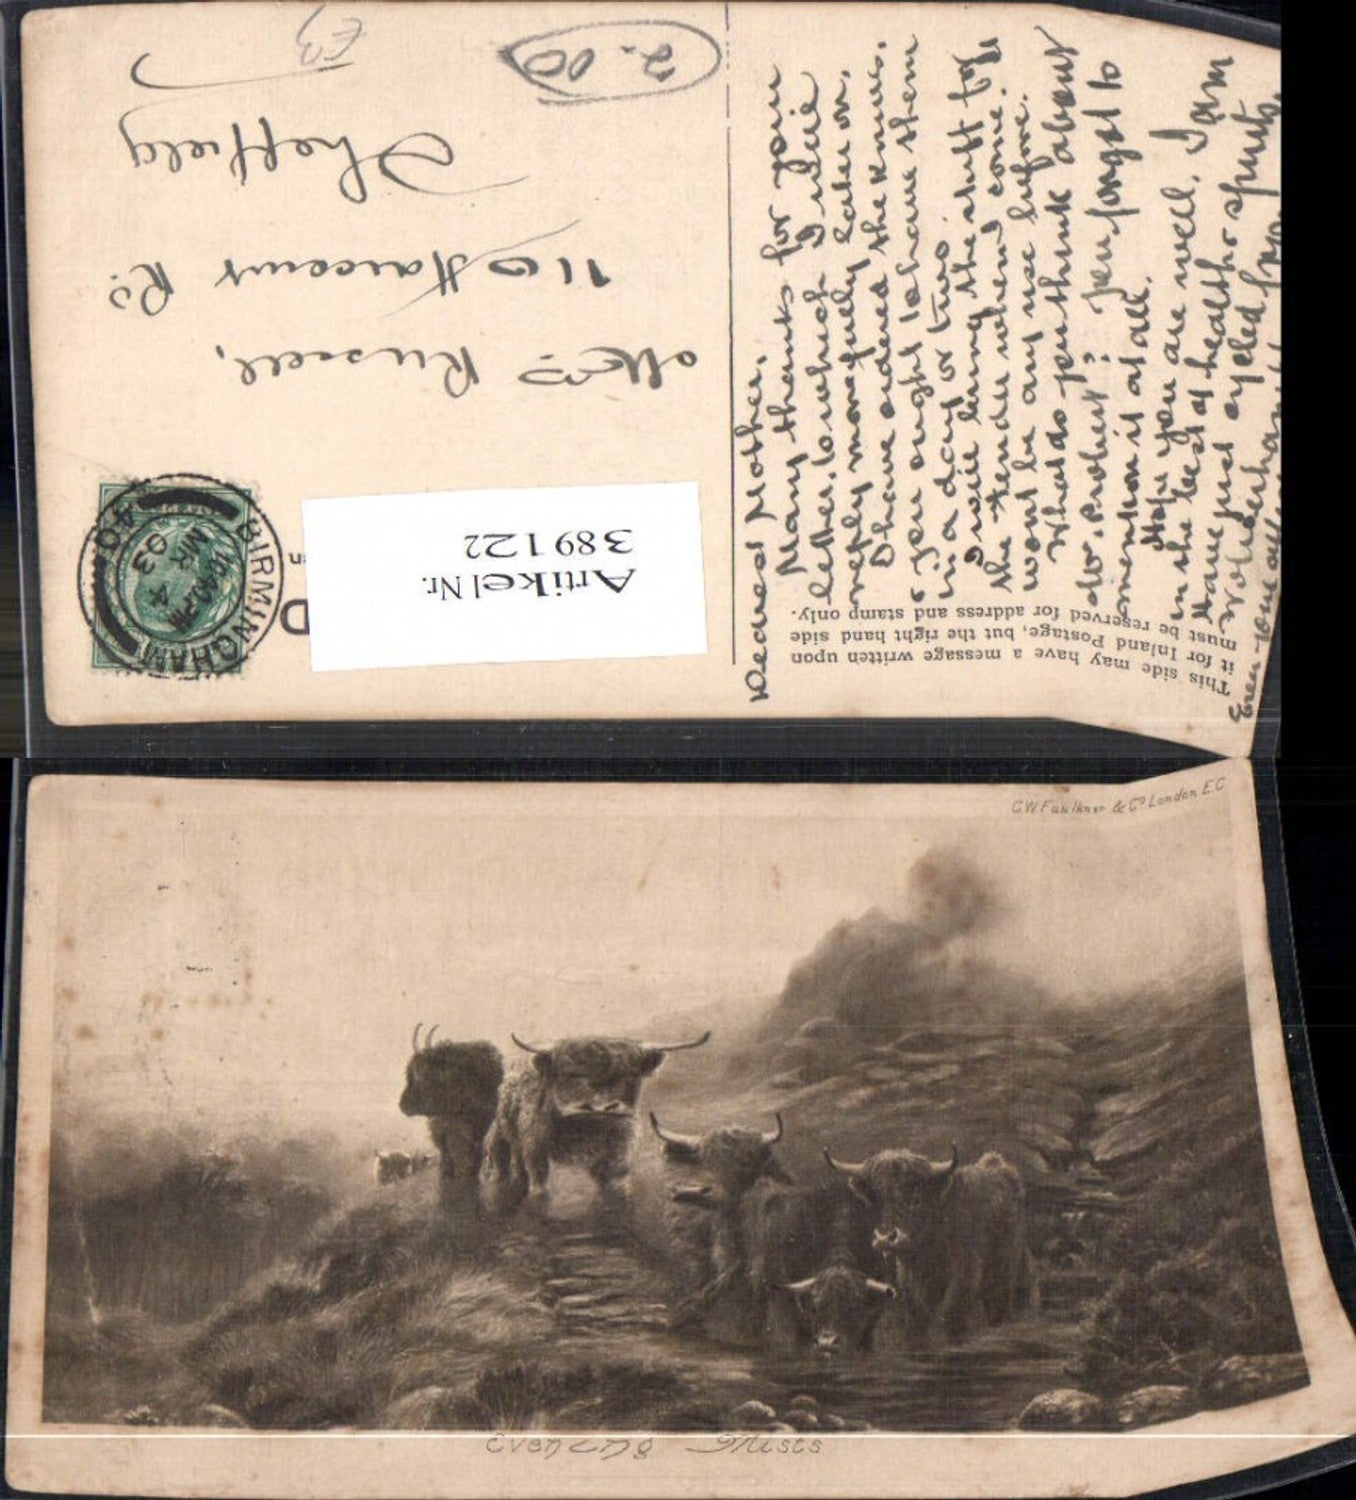 This side may have a message written upon
it for Inland Postage, but the right hand side
must be reserved for address and stamp only.
Dearest Mother,
Many thanks for your
letter, to which I will
reply more fully later on.
I have ordered the Knives.
& you ought to have them
in a day or two.
I will bring the stuff for
the when I come.
wont be any use before.
What do you think about
dr. Probert? you forgot to
mention it at all.
Hope you are well. I am
in the best of health & spirits.
Have just cycled from
Wolverhampton
Even
2.00
Artikel Nr.
389122
BIRMINGHAM
MR 4
03
40
Mrs Russell,
110 Harcourt Rd
Sheffield
C.W. Faulkner & Co London E.C
Evening Mists